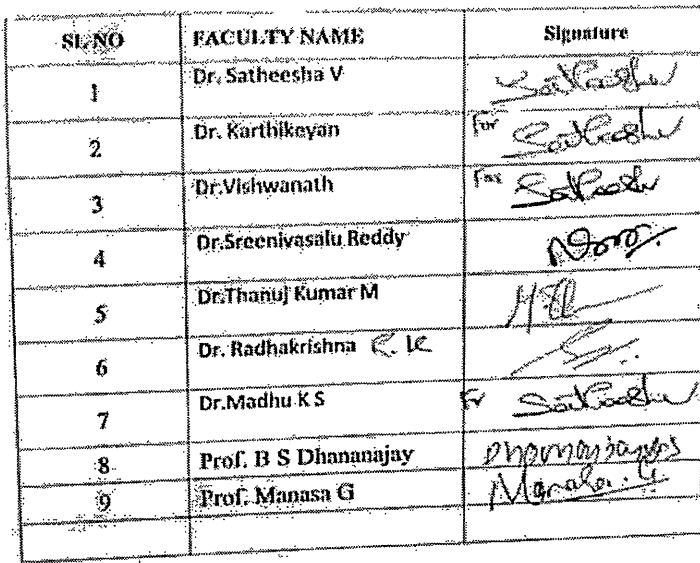 SL.NO FACULTY NAME Signature
1 Dr. Satheesha V Satheesha
2 Dr. Karthikeyan For Satheesha
3 Dr.Vishwanath For Satheesha
4 Dr.Sreenivasalu Reddy
5 Dr.Thanuj Kumar M
6 Dr. Radhakrishna
7 Dr.Madhu K S For Satheesha
8 Prof. B S Dhananajay
9 Prof. Manasa G Manasa. G